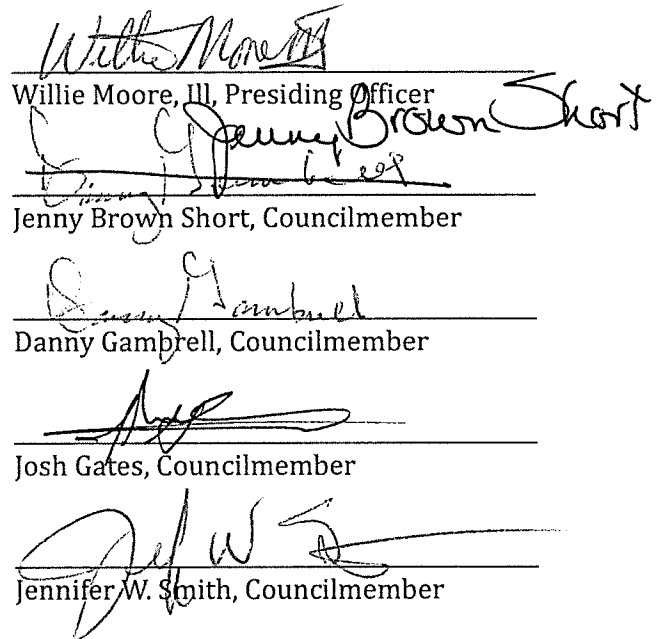 Willie Moore III
Willie Moore, III, Presiding Officer
Jenny Brown Short
Danny Gambrell
Jenny Brown Short, Councilmember
Danny Gambrell
Danny Gambrell, Councilmember
Josh Gates, Councilmember
Jennifer W. Smith, Councilmember